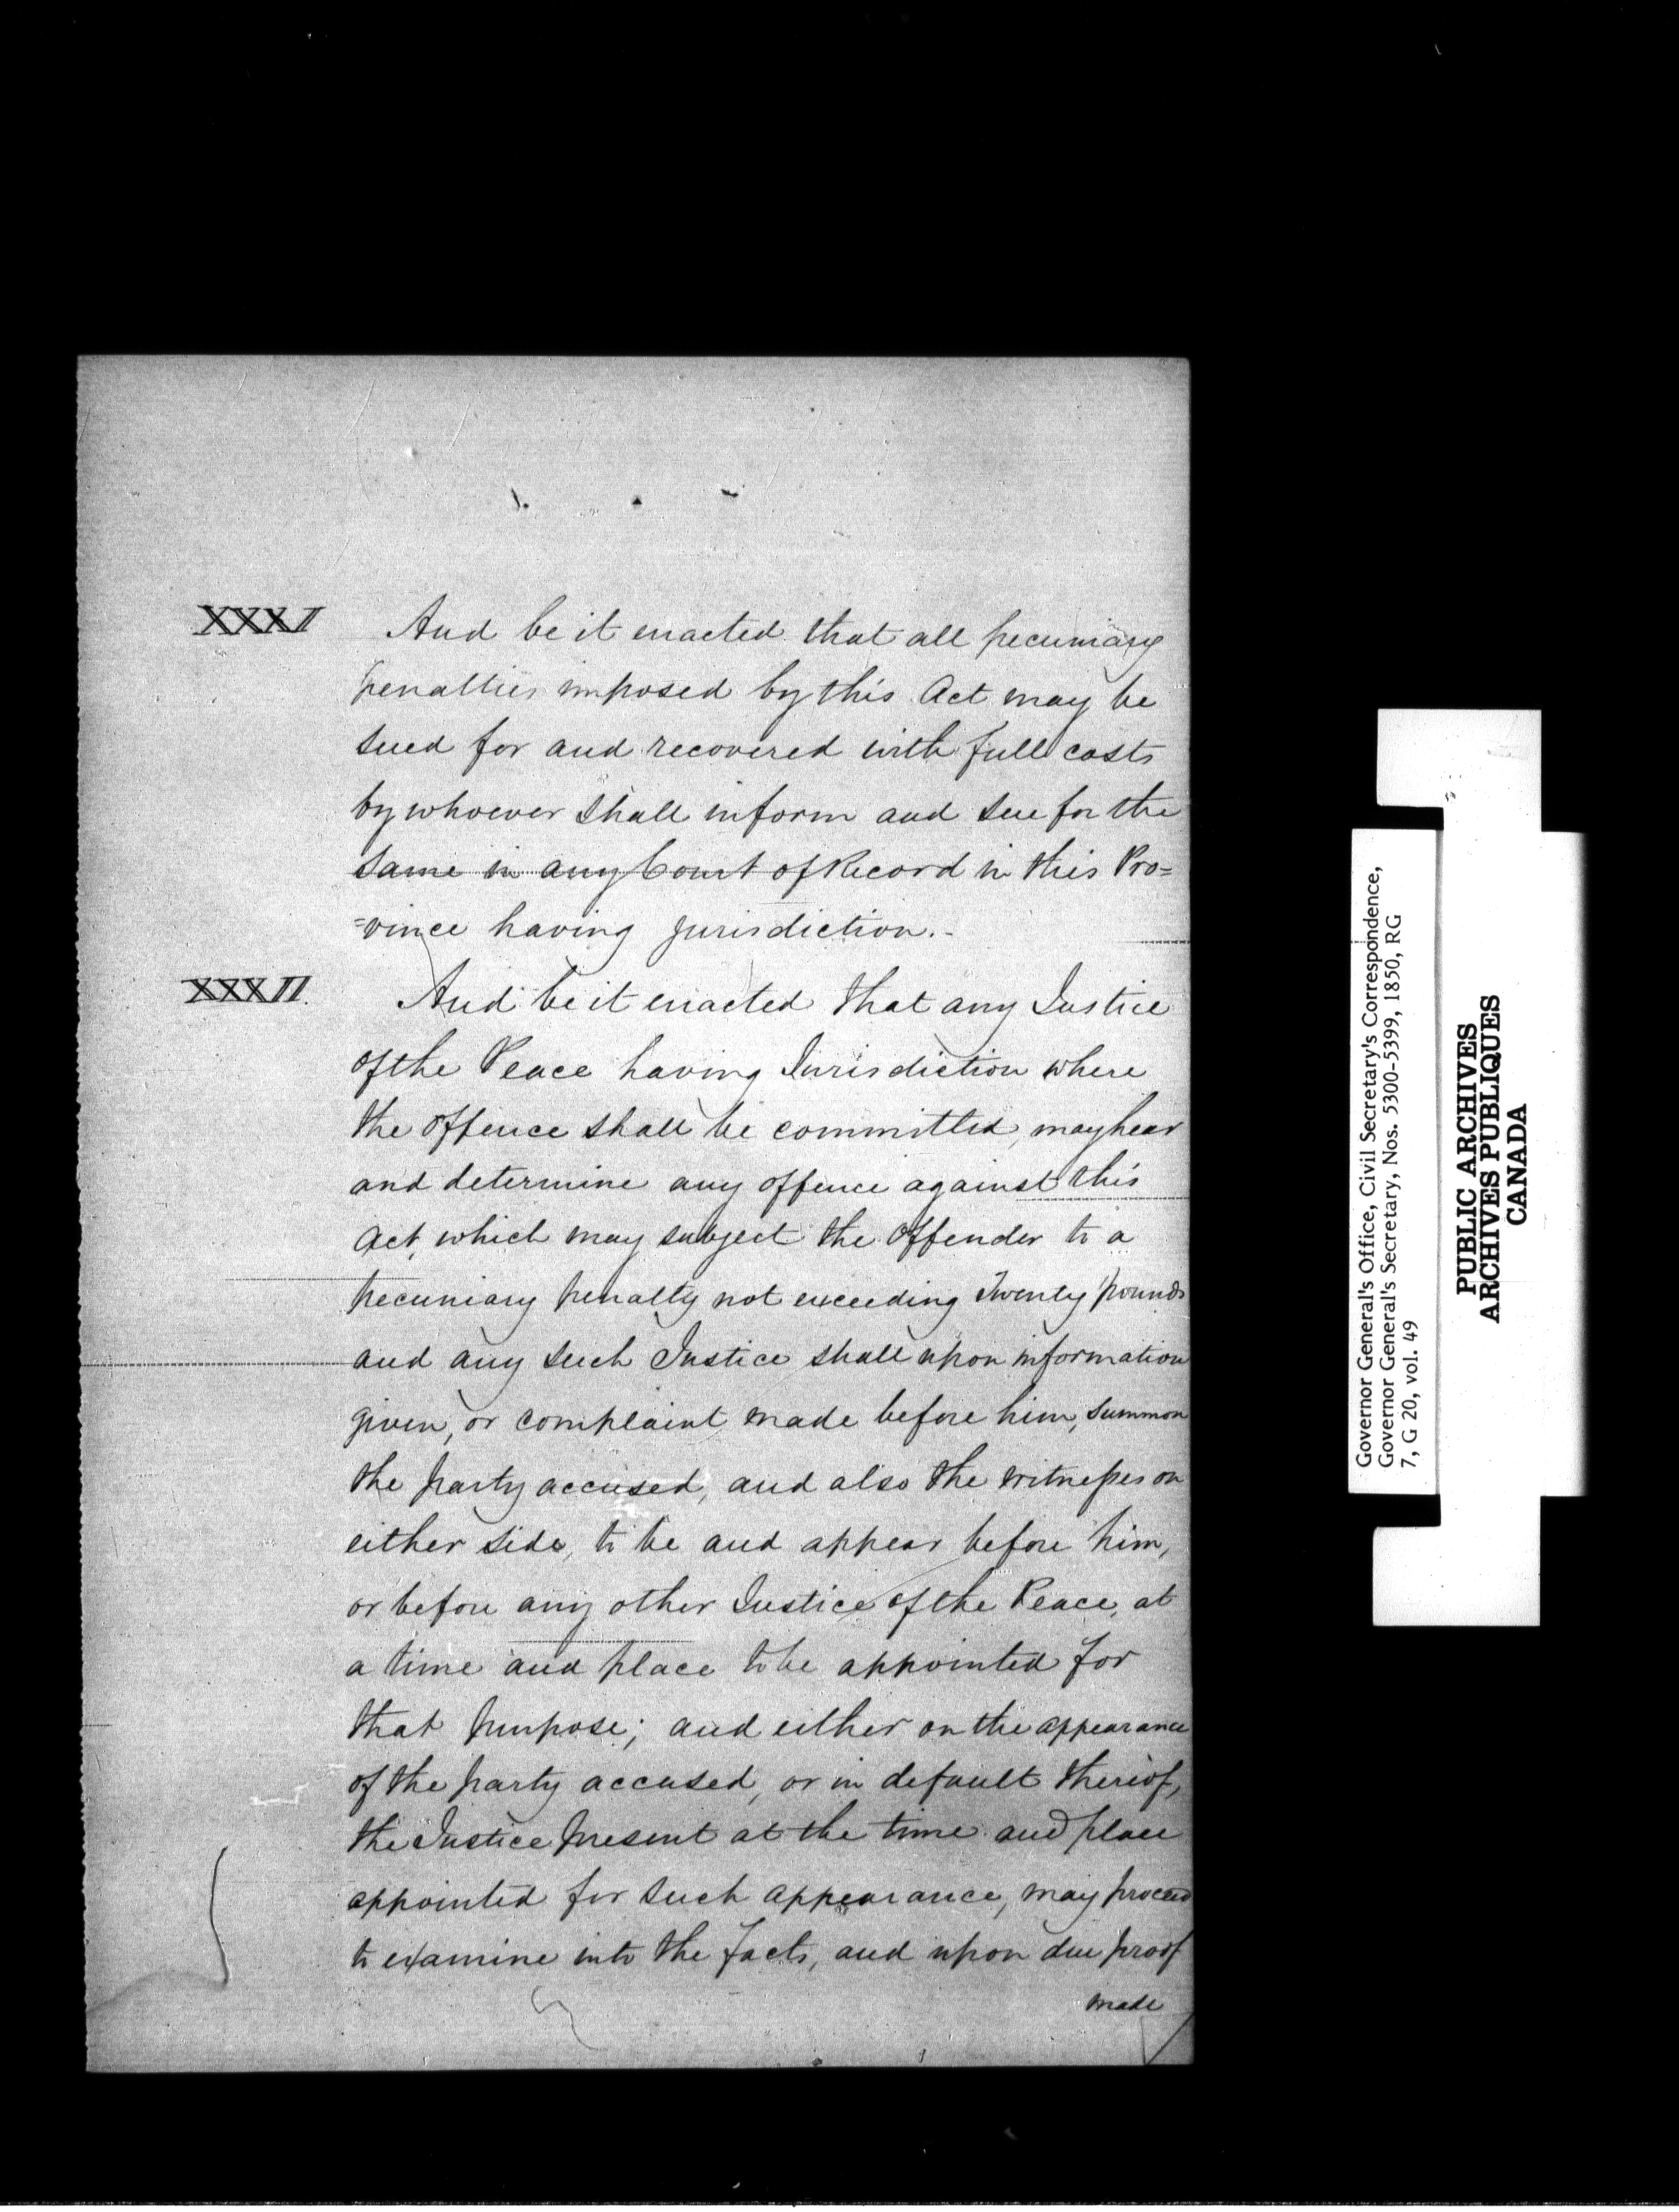 XXXI
And be it enacted that all pecuniary
penalties imposed by this Act may be
sued for and recovered with full costs
by whoever shall inform and sue for the
same in any Court of Record in this Pro=
=vince having jurisdiction.-
XXXII.
And be it enacted that any Justice
of the Peace having Jurisdiction where
the offence shall be committed, may hear
and determine any offence against this
Act, which may subject the offender to a
pecuniary penalty not exceeding Twenty pounds
and any such Justice shall upon information
given, or complaint made before him, summon
the party accused, and also the witnesses on
either side, to be and appear before him,
or before any other Justice of the Peace, at
a time and place to be appointed for
that purpose; and either on the appearance
of the party accused, or in default thereof,
the Justice present at the time and place
appointed for such appearance, may proceed
to examine into the facts, and upon due proof
made
Governor General's Office, Civil Secretary's Correspondence,
Governor General's Secretary, Nos. 5300-5399, 1850, RG
7, G 20, vol. 49
PUBLIC ARCHIVES
ARCHIVES PUBLIQUES
CANADA